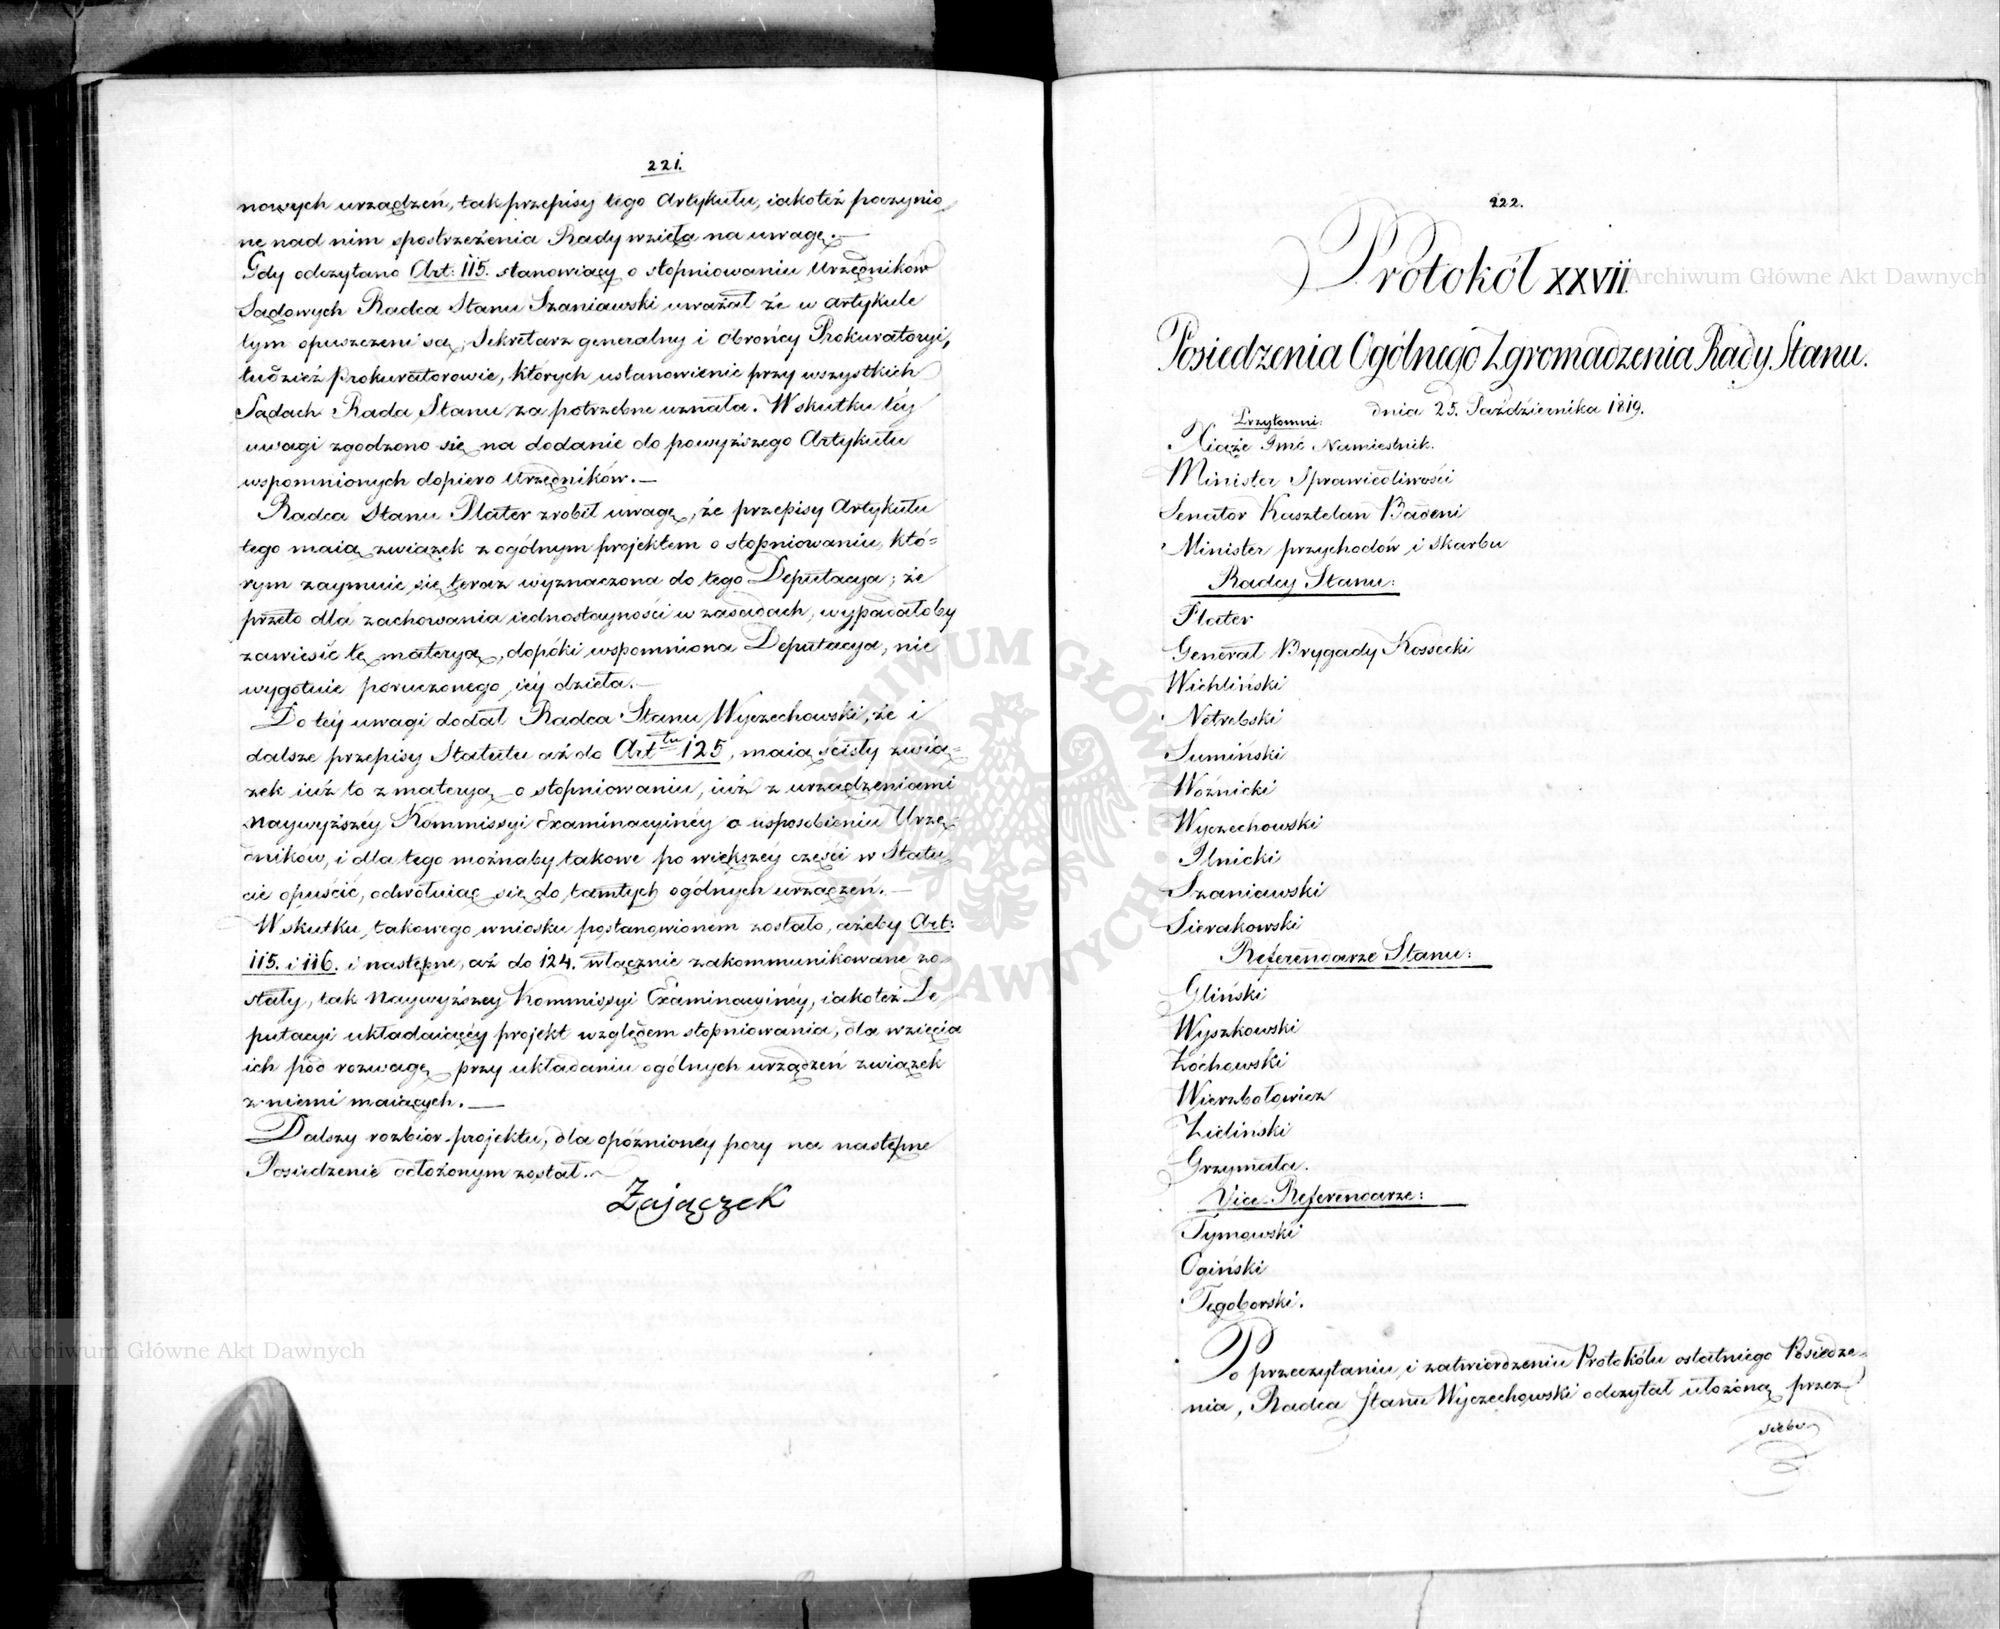 221.
nowych urządzeń, tak przepisy tego Artykułu, iakoteż poczynio-
ne nad nim spostrzeżenia Rady wzięła na uwagę.—
Gdy odczytano Art: 115. stanowiący o stopniowaniu Urzędników
Sądowych Radca Stanu Szaniawski uważał że w artykule
tym opuszczeni są, Sekretarz generalny i obrońcy Prokuratoryi,
tudzież Prokuratorowie, których ustanowienie przy wszystkich
Sądach Rada Stanu za potrzebne uznała. W skutku téy
uwagi zgodzono się na dodanie do powyższego Artykułu
wspomnionych dopiero Urzędników.—
Radca Stanu Plater zrobił uwagę, że przepisy Artykułu
tego maią związek z ogólnym projektem o stopniowaniu, któ=
rym zaymuie się teraz wyznaczona do tego Deputacya; że
przeto dla zachowania iednostayności w zasadach, wypadałoby
zawiesić tę materyą, dopóki wspomniona Deputacya, nie
wygotuie poruczonego iéy dzieła.—
Do téy uwagi dodał Radca Stanu Wyczechowski, że i
dalsze przepisy Statutu aż do Art tu 125, maią ścisły zwią=
zek iuż to z materyą o stopniowaniu, iuż z urządzeniami
Naywyższéy Kommissyi Examinacyinéy o usposobieniu Urzę-
dników, i dla tego możnaby takowe po większéy części w Statu-
cie opuścić, odwołuiąc się do tamtych ogólnych urządzeń.—
W skutku takowego wniosku postanowionem zostało, ażeby Art:
115. i 116. i następne, aż do 124. włącznie zakommunikowane zo-
stały, tak Naywyższey Kommissyi Examinacyinéy, iakoteż De-
putacyi układaiącéy projekt względem stopniowania, dla wzięcia
ich pod rozwagę przy układaniu ogólnych urządzeń związek
z niemi maiących.—
Dalszy rozbior projektu, dla opóźnionéy pory na następne
Posiedzenie odłożonym został.—
Zajączek
222.
Protokół XXVII.
Posiedzenia Ogólnego Zgromadzenia Rady Stanu.
dnia 25. Października 1819.
Przytomni:
Xiąże Jmć Namiestnik.
Minister Sprawiedliwości
Senator Kasztelan Badeni
Minister przychodów i Skarbu
Radcy Stanu:
Plater
Generał Brygady Kossecki
Wichliński
Netrebski
Sumiński
Woźnicki
Wyczechowski
Ilnicki
Szaniawski
Sierakowski
Referendarze Stanu:
Gliński
Wyszkowski
Żóchowski
Wierzbołowicz
Zieliński
Grzymała.
Vice-Referendarze:
Tymowski
Ogiński
Tęgoborski.
Po przeczytaniu i zatwierdzeniu Protokółu ostatniego Posiedze=
nia, Radca Stanu Wyczechowski odczytał ułożoną przez
siebie
Archiwum Główne Akt Dawnych
Archiwum Główne Akt Dawnych
ARCHIWUM GŁÓWNE AKT DAWNYCH